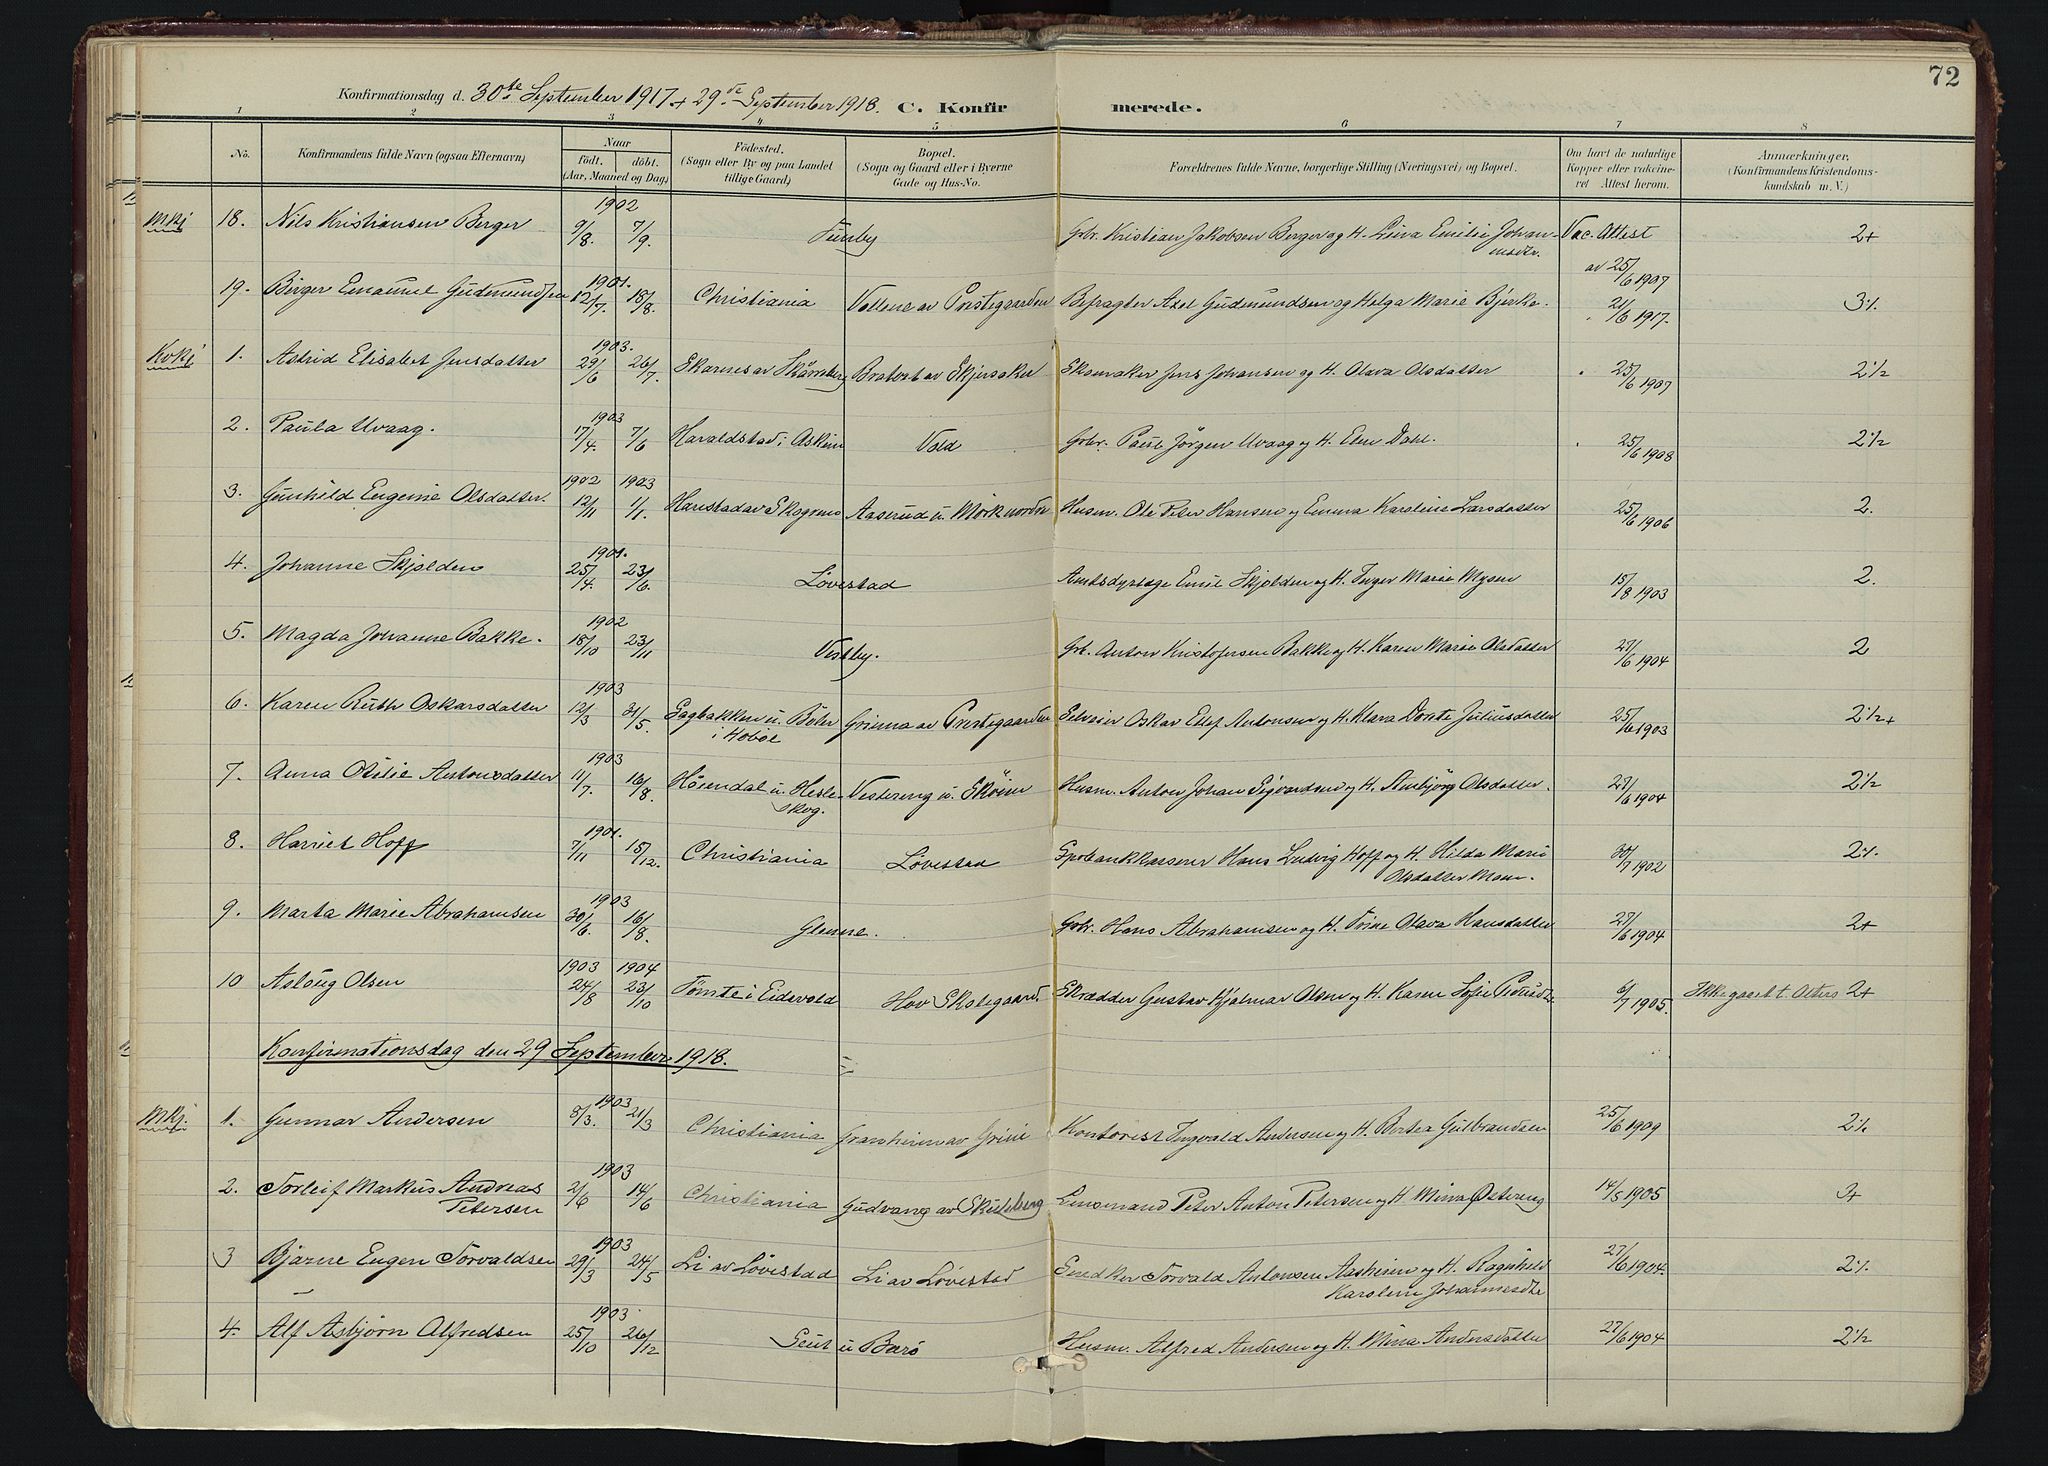 72
Konfirmationsdag d. 30te September 1917 + 29de September 1918. C. Konfirmerede.
1 2 3 4 5 6 7 8
No. Konfirmandens fulde Navn (ogsaa Efternavn) Naar født. døbt. (Aar, Maaned og Dag) Fødested. (Sogn eller By og paa Landet tillige Gaard) Bopæl. (Sogn og Gaard eller i Byerne Gade og Hus-No. Forældrenes fulde Navne, borgerlige Stilling (Næringsvei) og Bopæl. Om havt de naturlige Kopper eller vaccineret Attest herom. Anmærkninger. (Konfirmandens Kristendomskundskab m. V.)
1902
Mkj 18. Nils Kristiansen Berger 9/8. 7/9. Gbr. Kristian Jakobsen Berger og H. Lina Emilie Johansdtr. Vac. Attest av 25/6 1907 2+
1901.
19. Birger Emanuel Gudmundsen 12/7. 18/8. Christiania Vollene av Prestegaarden Befragter Axel Gudmundsen og Helga Marie Bjerke. 21/6 1917. 3½
1903.
Kvkj 1. Astrid Elisabet Jensdatter 29/6 26/7. Skarnes av Bratort av Skjersaker Skomaker Jens Johansen og H. Olava Olsdatter 25/6 1907 2½
1903
2. Paula Uvaag. 17/4. 7/6 Haraldstad i Askim Vold Gbr. Paul Jörgen Uvaag og H. Elen Dahl. 25/6 1908 2½
1902 1903
3. Gunhild Eugenie Olsdatter. 12/11 1/1. Aaserud u. Mörk nordre Husm. Ole Peter Hansen og Emma Karoline Larsdatter 25/6 1906 2.
1901.
4. Johanne Skjolden 25/4. 23/6. Løvestad Amtsdyrlæge Emil Skjolden og H. Inger Marie Mysen 15/8 1903 2.
1902
5. Magda Johanne Bakke. 18/10 23/11 Vestby. Gbr. Anton Kristofersen Bakke og H. Karen Marie Olsdatter 27/6 1904 2
1903
6. Karen Ruth Oskarsdatter 12/3 31/5. Sagbakken u. i Hobøl Grinna av Prestegaarden Oskar Antonsen og H. Klara Dorte Juliusdatter 25/6 1903 2½+
1903
7. Anna Otilie Antonsdatter 11/7. 16/8. Höiendal u. Hesleskog. Vestereng u. Skóim Husm. Anton Johan Sigvardsen og H. Anbjörg Olsdatter. 27/6 1904 2½
1901.
8. Harriet Hoff 7/11 15/12. Christiania Løvestad Spbankkasserer Hans Ludvig Hoff og H. Hilda Marie Olsdatter Moen. 30/7 1902 2½
1903
9. Marta Marie Abrahamsen 30/6. 16/8. Glenne. Gbr. Hans Abrahamsen og H. Trine Olava Hansdatter 27/6 1904 2+
1903 1904
10 Aslaug Olsen 24/8 23/10 Tömte i Eidsvold Hov Skolegaard Skrædder Gustav Hjalmar Olsen og H. Karen Sofie 6/7 1905. Ikke gaaet t. Alters 2+
Konfirmationsdag den 29 September 1918.
1903
Mkj. 1. Gunnar Andersen 8/3. 21/3 Christiania Granheim av Grini Kontorist Ingvald Andersen og H. Berta Gulbrandsen 25/6 1909 2½
1903
2. Torleif Markus Andreas Petersen 2/6 14/6 Christiania Gudvang av Skulsberg Lensmand Peter Anton Petersen og H. Mina Östereng 14/5 1905 3+
1903
3 Bjarne Eugen Torvaldsen 29/3 24/5 Li av Lövestad Li av Lövestad Snedker Torvald Antonsen Aasheim og H. Ragnhild Karoline Johannesdtr 27/6 1904. 2½
1903.
4. Alf Asbjørn Alfredsen 25/10 26/12 u Barö Husm. Alfred Andersen og H. Mina Andersdatter 27/6 1904 2½